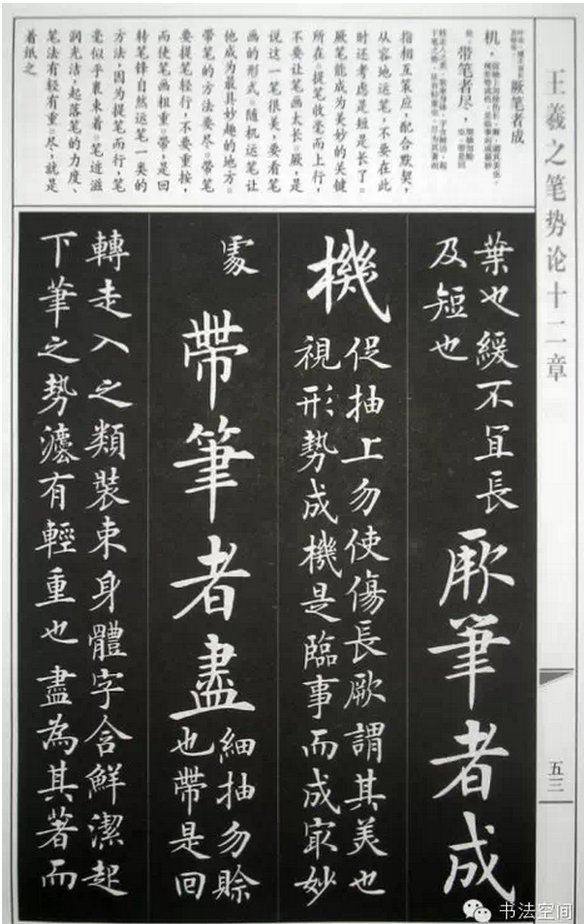 王羲之笔势论十二章
厥笔者成
机，
带笔者尽，
指相互策应，配合默契，
从容地运笔，不要在此
时还考虑是短是长了。
厥笔能成为美妙的关键
所在。提笔收毫而上行，
不要让笔画太长。厥，是
说这一笔很美，要有笔
画的形式。随机运笔让
他成为最具妙趣的地方。
带笔的方法要尽。带笔
要提笔轻行，不要重按，
而使笔画粗重。带，是回
转笔锋自然运笔一类的
方法，因为提笔而行，笔
毫似乎裹束着。笔迹滋
润光洁，起落笔的力度、
笔法有轻有重。尽，就是
着纸之
葉也緩不宜長
及短也
厥筆者成
機
促抽上勿使傷長厥謂其美也
視形勢成機是臨事而成冣妙
處
帶筆者盡
細抽勿賒
也帶是回
轉走入之類裝束身體字含鮮潔起
下筆之勢灋有輕重也盡為其著而
五三
书法空间